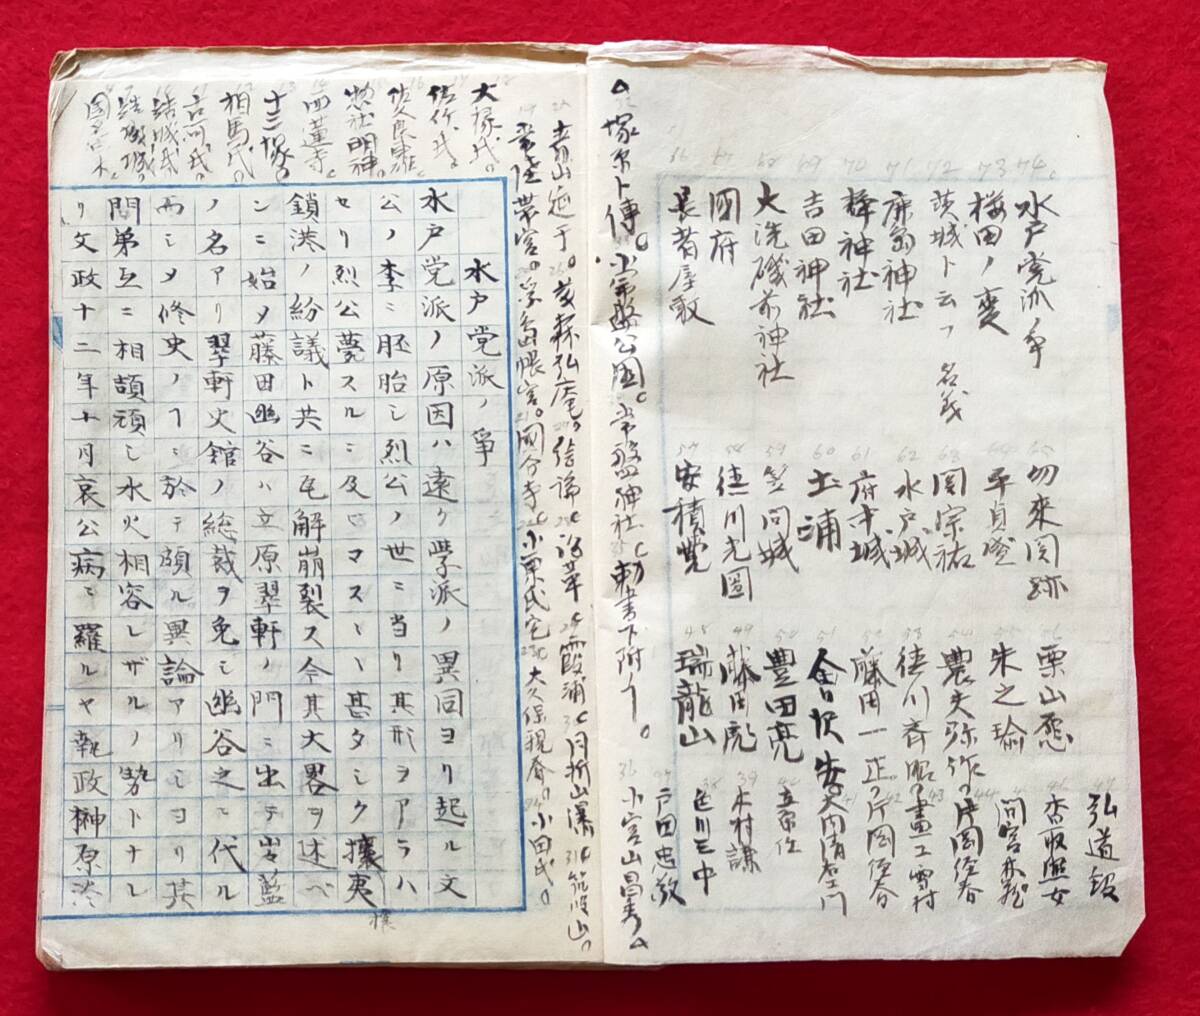 74 水戸党派ノ争
73 桜田ノ変
72 茨城ト云フ名義
71 鹿島神社
70 静神社
69 吉田神社
68 大洗磯前神社
67 國府
66 長者屋敷
65 勿來関跡
64 平貞盛
63 関宗祐
62 水戸城
61 府中城
60 土浦
59 笠間城
58 徳川光圀
57 安積覺
56 栗山愿
55 朱之瑜
54 農夫弥作
53 徳川斉昭
52 藤田一正
51 會沢安
50 豊田亮
49 藤田彪
48 瑞龍山
47 弘道館
46 杏取照女
45 間宮林蔵
44 片岡侭春
43 画工雪村
大内清右エ門
39 木村謙
38 色川三中
37 戸田忠敬
36 小宮山昌秀
塚原卜傳。小常盤公園。常盤神社。勅書下附。
青山延于。茂森弘庵。佐藤。霞浦。月折山瀑。筑波山。
常陸帯宮。学島帳宮。國分寺。小栗氏宅。大久保親春。小田氏。
大掾氏。
佐竹氏。
佐久良東雄。
惣社明神。
西蓮寺。
十三塚。
相馬氏。
古河氏。
結城氏。
結城城。
水戸党派ノ爭
水戸党派ノ原因ハ遠ク學派ノ異同ヨリ起ル文
公ノ季ニ胚胎シ烈公ノ世ニ当リ其形ヲアラハ
セリ烈公薨スルニ及ビマスヽ甚タシク攘夷
鎖港ノ紛議ト共ニ瓦解崩裂ス今其大畧ヲ述ベ
ンニ始メ藤田幽谷ハ立原翠軒ノ門ニ出テ出藍
ノ名アリ翠軒史館ノ総裁ヲ免シ幽谷之ニ代ル
而シメ修史ノ﹁ニ於テ頗ル異論アリシヨリ其
門弟互ニ相頡頏シ水火相容レザルノ勢トナレ
リ文政十二年十月哀公病ニ羅ルヤ執政榊原淡
攘